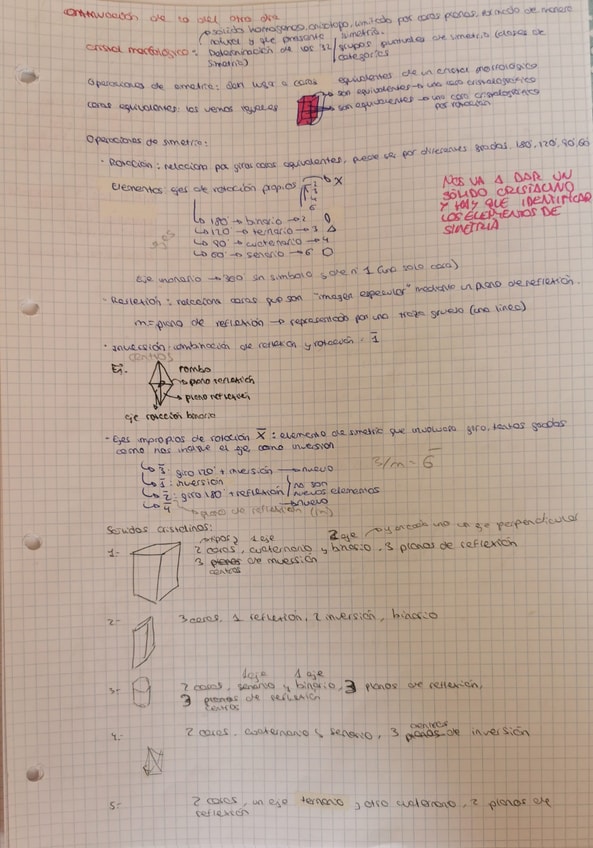 continuación de lo del otro día
sólido homogéneo, anisótropo, limitado por caras planas, formado de manera
natural y que presente simetría.
cristal morfológico: Determinación de los 32 grupos puntuales de simetría (clases de
simetría) categorías
operaciones de simetría: dan lugar a caras equivalentes de un cristal morfológico
caras equivalentes: las vemos iguales
son equivalentes → una cara cristalográfica
son equivalentes → una cara cristalográfica
por rotación
Operaciones de simetría:
· Rotación: relaciona por giros caras equivalentes, puede ser por diferentes grados, 180, 120, 90, 60
Elementos: ejes de rotación propios → X
2
3
4
6
NOS VA A DAR UN
SÓLIDO CRISTALINO
Y HAY QUE IDENTIFICAR
LOS ELEMENTOS DE
SIMETRÍA
ejes
180 → binario → 2
120 → ternario → 3 △
90 → cuaternario → 4
60 → senario → 6
Eje monario → 360 sin símbolo y de nº 1 (una sola cara)
· Reflexión: relaciona caras que son "imagen especular" mediante un plano de reflexión.
m = plano de reflexión → representado por una traza gruesa (una línea)
· Inversión: combinación de reflexión y rotación, 1̄
centros
Ej:
rombo
plano reflexión
plano reflexión
eje rotación binario
· Ejes impropios de rotación X̄: elemento de simetría que involucra giro, tantos grados
como nos indique el eje, como inversión
3/m = 6̄
3̄: giro 120° + inversión → nuevo
1̄: inversión
2̄: giro 180° + reflexión
no son
nuevos elementos
4̄ → nuevo
plano de reflexión (m)
Sólidos cristalinos:
1 eje 2 eje y en cada uno un eje perpendicular
1- 2 caras, cuaternario y binario, 3 planos de reflexión
3 planos de inversión
centros
2- 3 caras, 1 reflexión, 2 inversión, binario
1 eje 1 eje
3- 2 caras, senario y binario, 3 planos de reflexión,
3 planos de reflexión
centros
centros
4- 2 caras, cuaternario y senario, 3 planos de inversión
5- 2 caras, un eje ternario y otro cuaternario, 2 planos de
reflexión